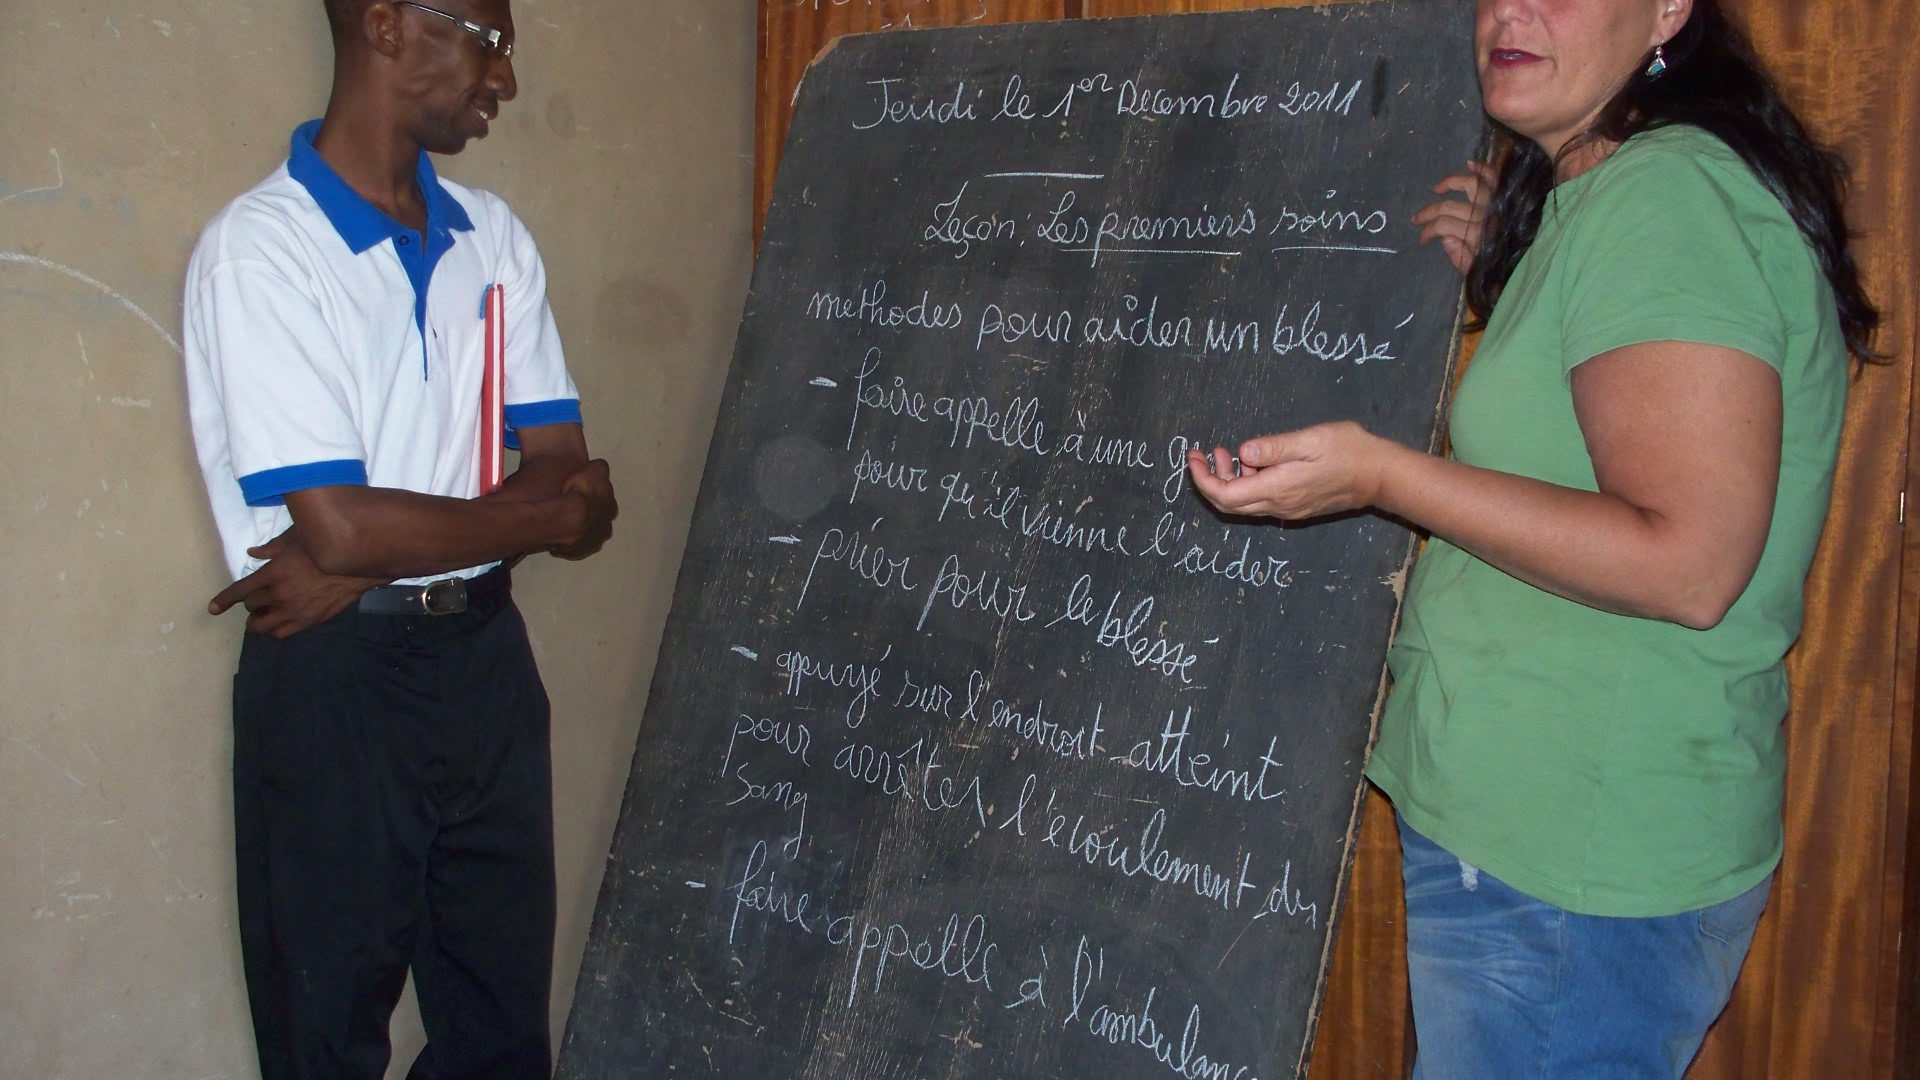 Jeudi le 1er Decembre 2011
Leçon: Les premiers soins
methodes pour aider un blessé
- faire appelle à une
pour qu'il vienne l'aider
- prier pour le blessé
- appuyé sur l'endroit atteint
pour arrêter l'écoulement du
sang
- faire appelle à l'ambulance